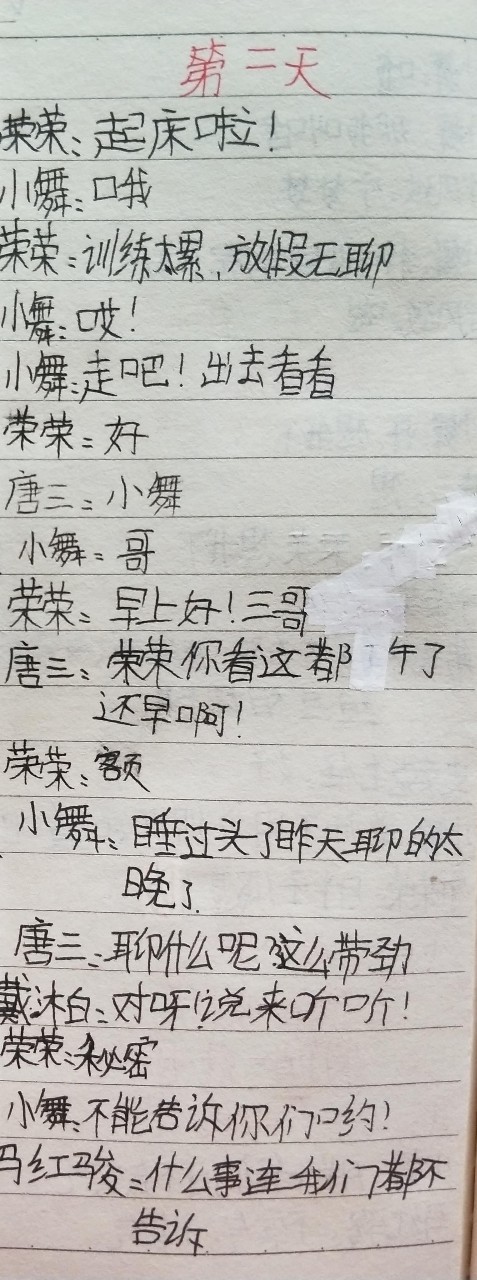 第二天
荣荣：起床啦！
小舞：哦
荣荣：训练太累，放假无聊
小舞：哎！
小舞：走吧！出去看看
荣荣：好
唐三：小舞
小舞：哥
荣荣：早上好！三哥
唐三：荣荣你看这都 午了
还早啊！
荣荣：额
小舞：睡过头了昨天聊的太
晚了.
唐三：聊什么呢这么带劲
戴沐白：对呀！说来听听！
荣荣：秘密
小舞：不能告诉你们哟！
马红骏：什么事连我们都不
告诉